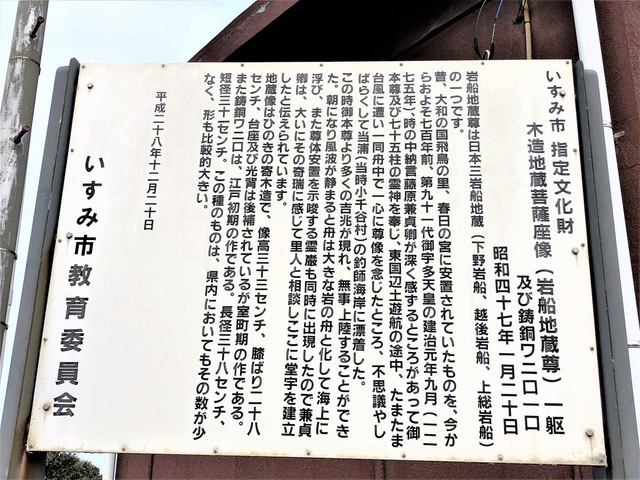 いすみ市 指定文化財
木造地蔵菩薩座像（岩船地蔵尊）一躯
及び鋳銅ワニ口一口
昭和四十七年一月二十日
岩船地蔵尊は日本三岩船地蔵（下野岩船、越後岩船、上総岩船）
の一つです。
昔、大和の国飛鳥の里、春日の宮に安置されていたものを、今か
らおよそ七百年前、第九十一代御宇多天皇の建治元年九月（一二
七五年）、時の中納言藤原兼貞卿が深く感ずるところがあって御
本尊及び七十五柱の霊神を奉じ、東国辺土遊航の途中、たまたま
台風に遭い一同舟中で一心に尊像を念じたところ、不思議やし
ばらくして当浦（当時小千谷村）の釣師海岸に漂着した。
この時御本尊より多くの吉兆が現れ、無事上陸することができ
た。朝になり風波が静まると舟は大きな岩の舟と化して海上に
浮び、また尊体安置を示唆する霊巌も同時に出現したので兼貞
卿は、大いにその奇瑞に感じて里人と相談しここに堂宇を建立
したと伝えられています。
地蔵像はひのきの寄木造で、像高三十三センチ、膝ばり二十八
センチ、台座及び光背は後補されているが室町期の作である。
また鋳銅ワニ口は、江戸初期の作である。長径三十八センチ、
短径三十一センチ。この種のものは、県内においてもその数が少
なく、形も比較的大きい。
平成二十八年十二月二十日
いすみ市教育委員会